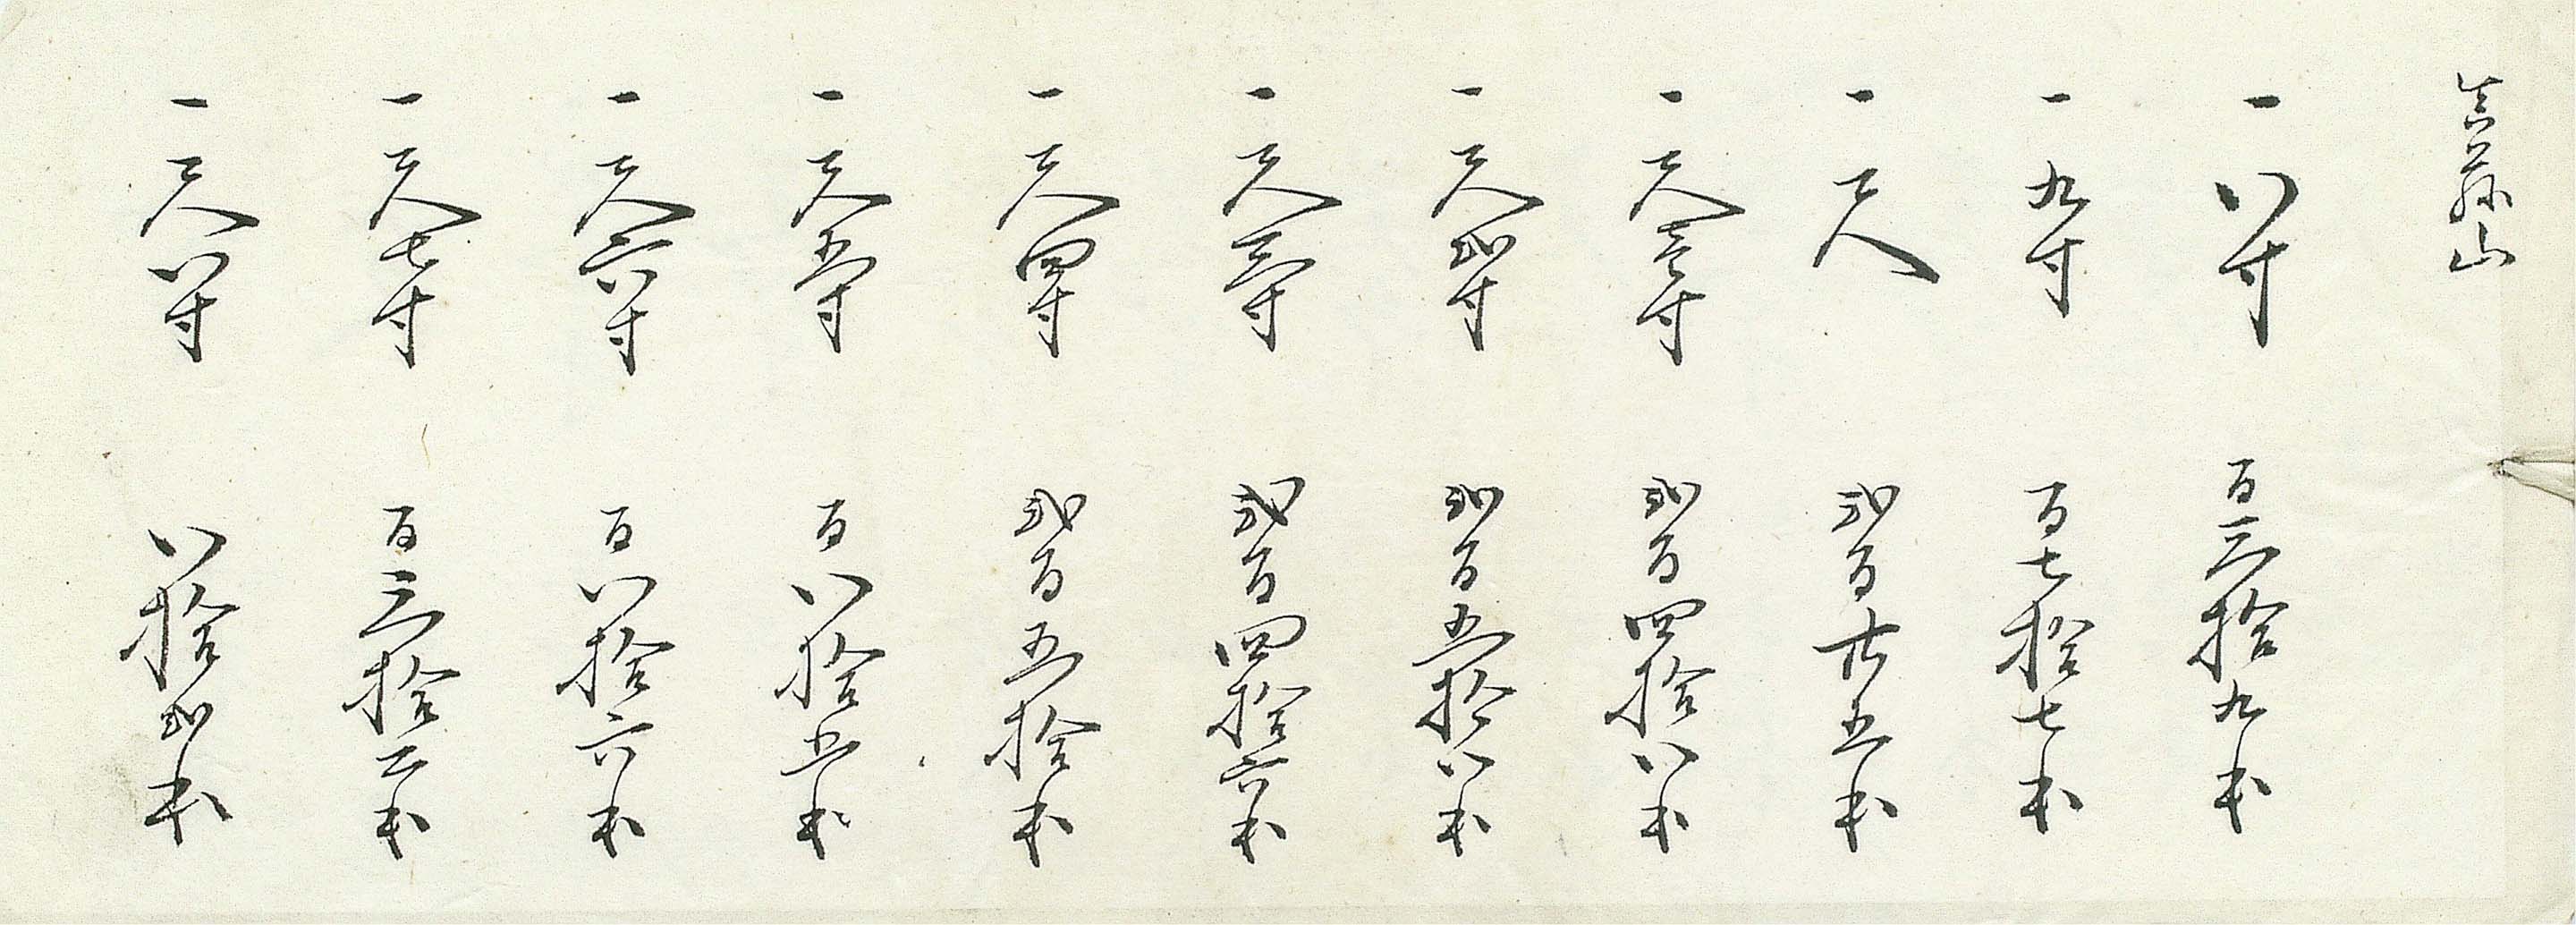 一八寸 百三拾九本
一九寸 百七拾七本
一壱尺 弐百廿五本
一壱尺壱寸 弐百四拾八本
一壱尺弐寸 弐百五拾八本
一壱尺三寸 弐百四拾六本
一壱尺四寸 弐百五拾本
一壱尺五寸 百八拾五本
一壱尺六寸 百八拾六本
一壱尺七寸 百三拾二本
一壱尺八寸 八拾弐本